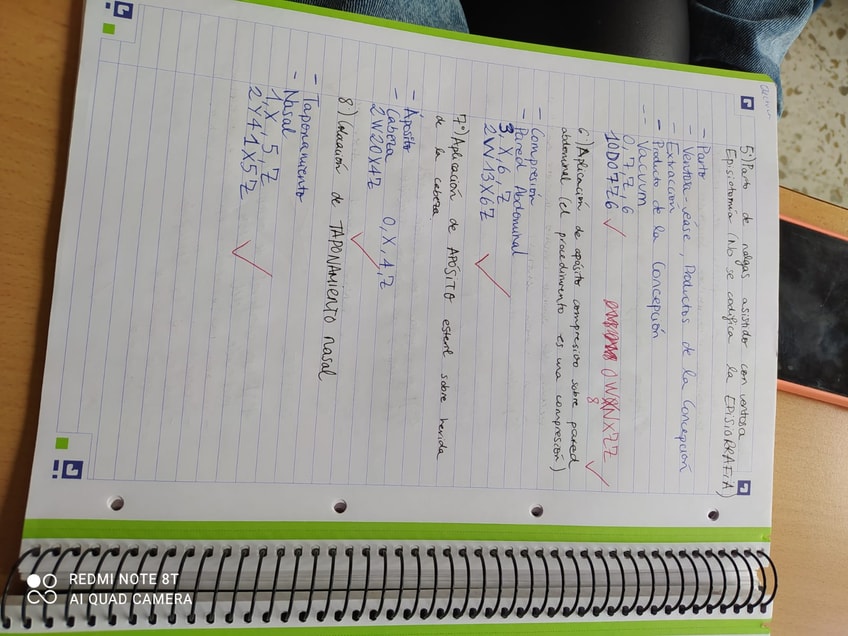 5º) Parto de nalgas asistido con ventosa
Episiotomía (No se codifica la EPISIORRAFIA)
- Parto
- Ventosa-véase, Productos de la Concepción
- Extracción
- Producto de la Concepción
-- Vacuum
0, 7, Z, 6
10D07Z6
0W8NXZZ
6º) Aplicación de apósito compresivo sobre pared
abdominal (el procedimiento es una compresión)
- Compresión
- Pared Abdominal
3, X, 6, Z
2W13X6Z
7º) Aplicación de APÓSITO esteril sobre herida
de la cabeza
- Apósito
- Cabeza 0, X, 4, Z
2W20X4Z
8º) Colocación de TAPONAMIENTO nasal
- Taponamiento
- Nasal
1, X, 5, Z
2Y41X5Z
REDMI NOTE 8T
AI QUAD CAMERA